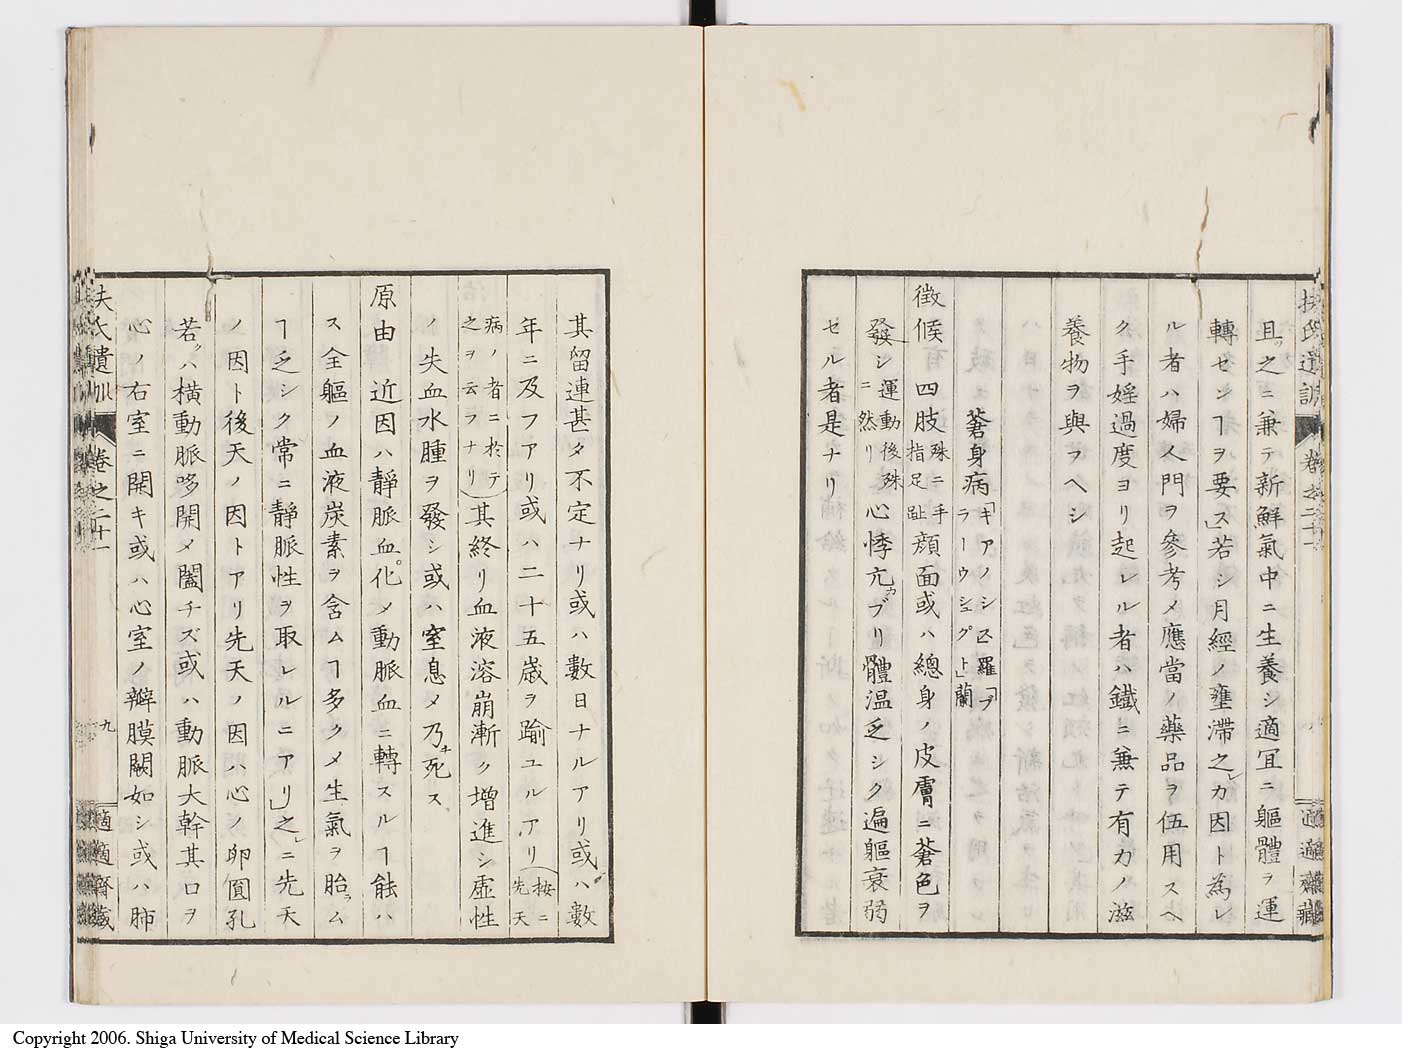 扶氏遺訓 卷之二十一 適適齋藏
且ツ之ニ兼テ新鮮氣中ニ生養シ適宜ニ軀體ヲ運
轉セシヿヲ要ス」若シ月經ノ壅滯之レカ因ト爲レ
ル者ハ婦人門ヲ參考メ應當ノ藥品ヲ伍用スヘ
ク手婬過度ヨリ起レル者ハ鐵ニ兼テ有力ノ滋
養物ヲ與フヘシ
蒼身病「キアノシス羅「ブラーウシュグト」蘭
徴候 四肢殊ニ手指足趾顔面或ハ總身ノ皮膚ニ蒼色ヲ
發シ運動後殊ニ然リ心悸亢ブリ體温乏シク遍軀衰弱
セル者是ナリ
其留連甚タ不定ナリ或ハ數日ナルアリ或ハ數
年ニ及フアリ或ハ二十五歳ヲ踰ユルアリ(按ニ先天
病ノ者ニ於テ之ヲ云フナリ)其終リ血液溶崩漸ク增進シ虛性
ノ失血水腫ヲ發シ或ハ窒息メ乃チ死ス
原由 近因ハ靜脈血化メ動脈血ニ轉スルヿ能ハ
ス全軀ノ血液炭素ヲ含ムヿ多クメ生氣ヲ胎ム
ヿ乏シク常ニ靜脈性ヲ取レルニアリ」之レニ先天
ノ因ト後天ノ因トアリ先天ノ因ハ心ノ卵圓孔
若クハ横動脈哆開メ闔チズ或ハ動脈大幹其口ヲ
心ノ右室ニ開キ或ハ心室ノ瓣膜闕如シ或ハ肺
扶氏遺訓 卷之二十一 九 適適齋藏
Copyright 2006. Shiga University of Medical Science Library